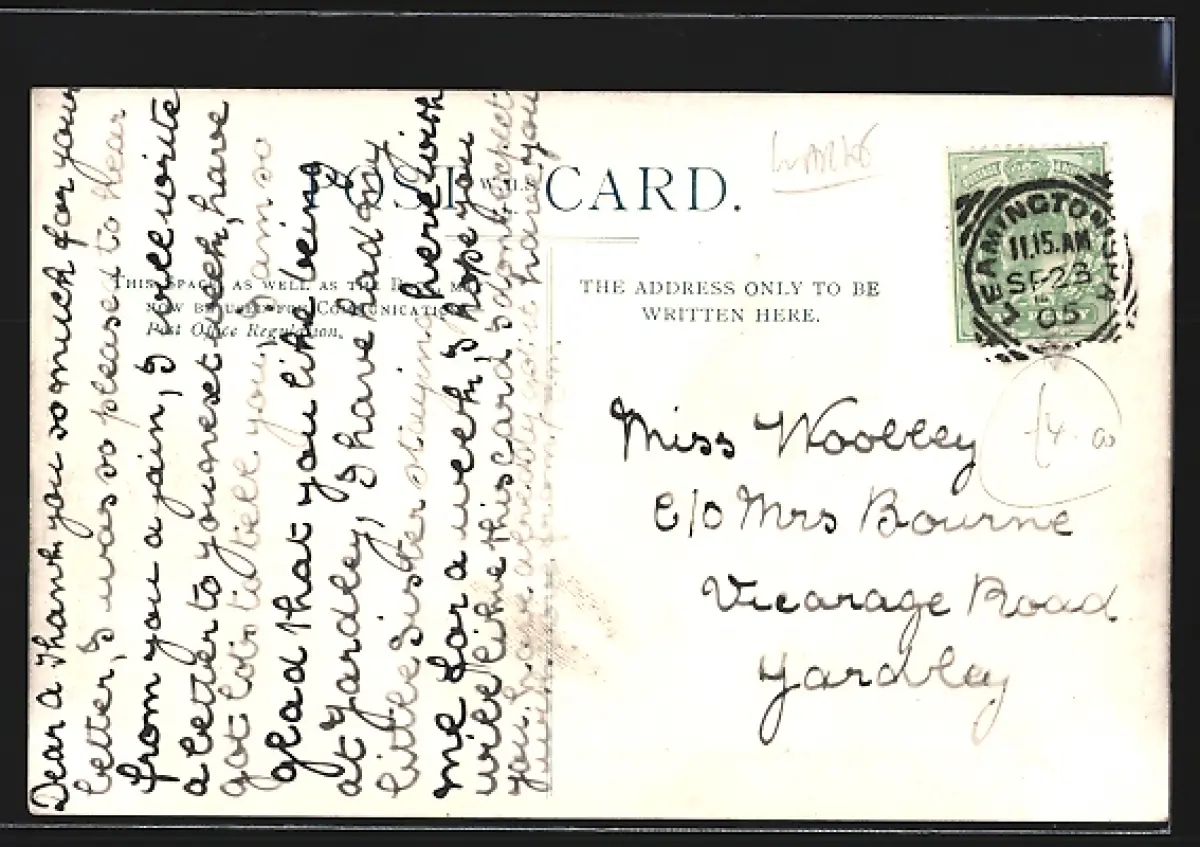 Dear A Thank you so much for your
letter, I was so pleased to hear
from you a gain, I will write
a letter to you next week, have
got lots to tell you, I am so
glad that you like being
at Yardley, I have had my
little sister staying here with
me for a week, I hope you
will like this card, I don't expect
you have already got it have you
POST CARD.
THIS SPACE AS WELL AS THE BACK MAY
NOW BE USED FOR COMMUNICATION
Post Office Regulation.
THE ADDRESS ONLY TO BE
WRITTEN HERE.
LEAMINGTON SPA
11.15.AM
SP23
05
£4.00
Miss Woolley
C/O Mrs Bourne
Vicarage Road
Yardley